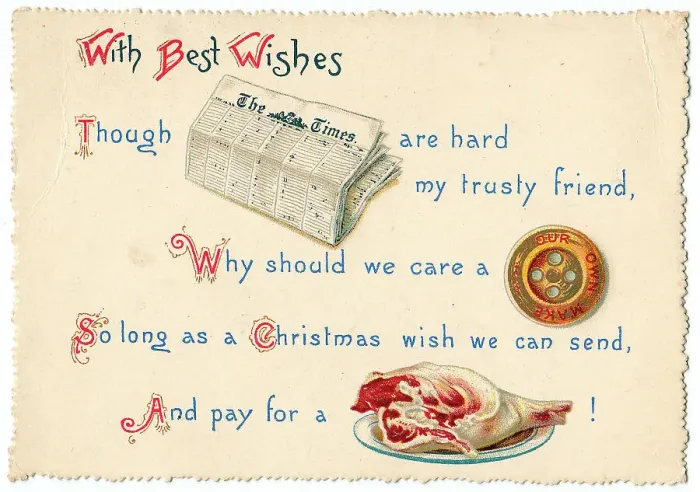 With Best Wishes
Though The Times. are hard
my trusty friend,
Why should we care a OUR OWN MAKE
So long as a Christmas wish we can send,
And pay for a !